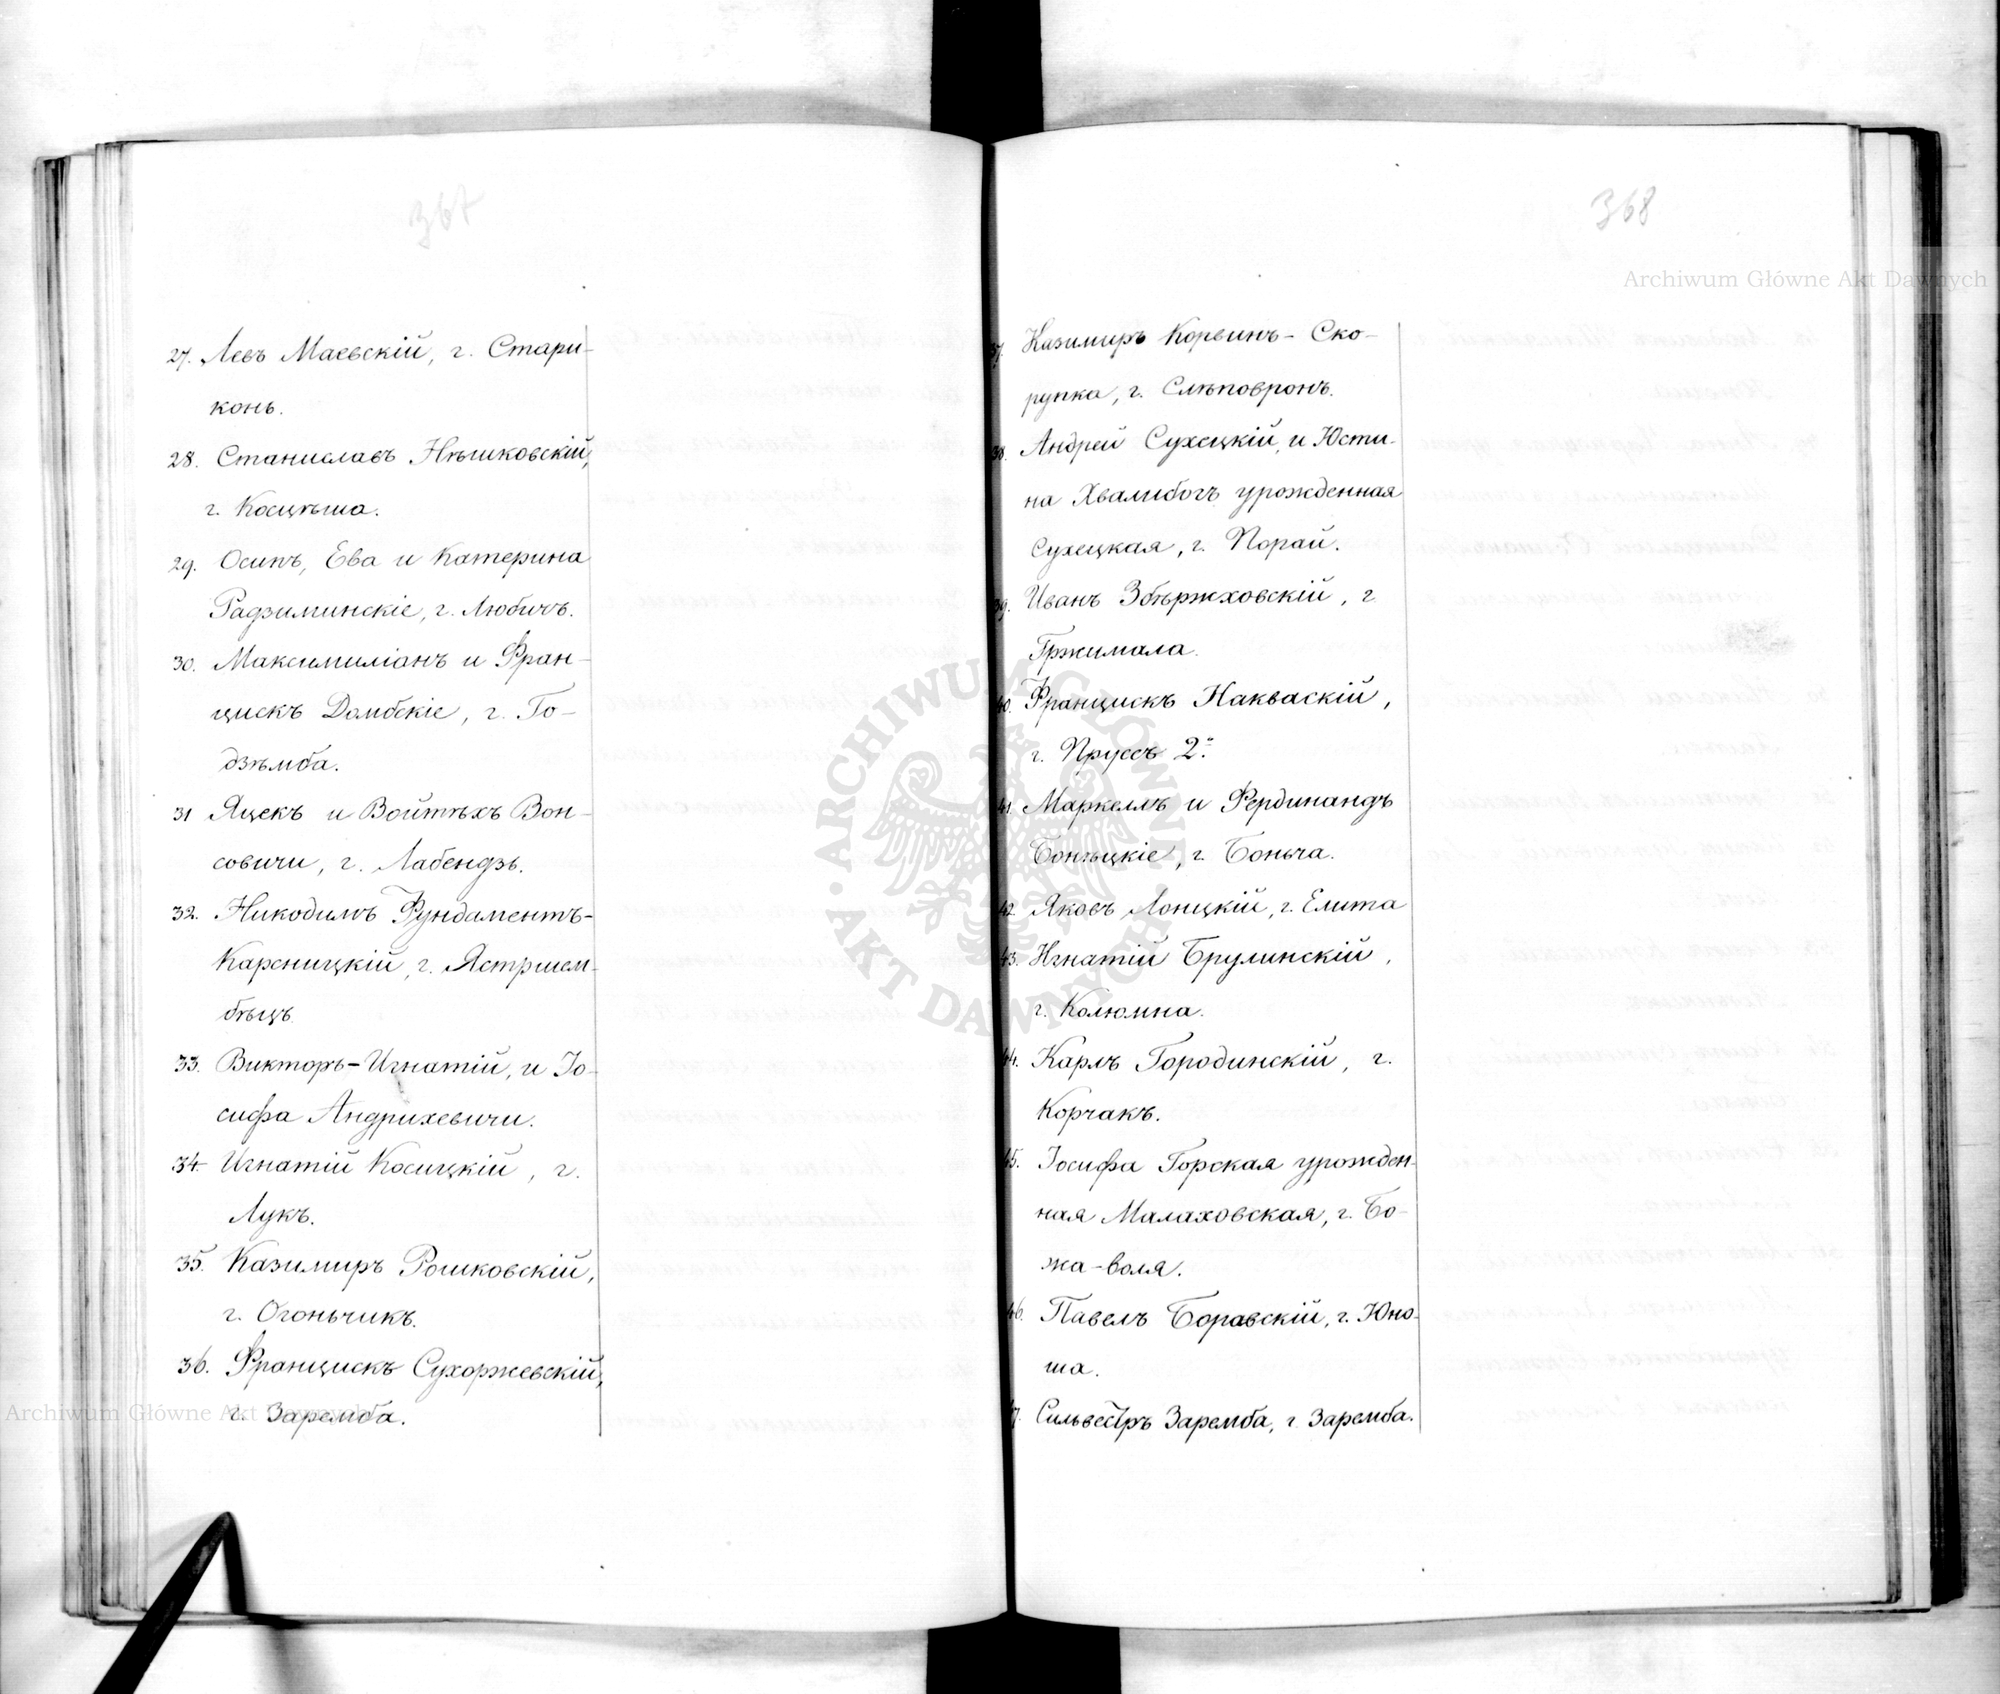 367
27. Левъ Маевскій, г. Стари-
конь.
28. Станиславъ Нѣшковскій,
г. Косцѣша.
29. Осипъ, Ева и Катерина
Радзиминскіе, г. Любичъ.
30. Максимиліанъ и Фран-
цискъ Домбскіе, г. Го-
дзѣмба.
31 Яцекъ и Войтѣхъ Вон-
совичи, г. Лабендзь.
32. Никодимъ Фундаментъ-
Карсницкій, г. Ястршем-
бѣцъ
33. Викторъ-Игнатій, и Іо-
сифа Андрихевичи.
34. Игнатій Косицкій, г.
Лукъ.
35. Казимиръ Рошковскій,
г. Огоньчикъ.
36. Францискъ Сухоржевскій,
г. Заремба.
368
37. Казимиръ Корвинъ-Ско-
рупка, г. Слѣповронъ.
38. Андрей Сухецкій, и Юсти-
на Хвалибогъ урожденная
Сухецкая, г. Порай.
39. Иванъ Збѣржховскій, г.
Гржимала.
40. Францискъ Накваскій,
г. Пруссъ 2й
41. Маркеллъ и Фердинандъ
Бонѣцкіе, г. Боньча.
42. Яковъ Лоницкій, г. Елита
43. Игнатій Брулинскій,
г. Колюмна.
44. Карлъ Городинскій, г.
Корчакъ.
45. Іосифа Горская урожден-
ная Малаховская, г. Бо-
жа-воля.
46. Павелъ Боравскій, г. Юно-
ша.
47. Сильвестръ Заремба, г. Заремба.
Archiwum Główne Akt Dawnych
ARCHIWUM GŁÓWNE AKT DAWNYCH
Archiwum Główne Akt Dawnych